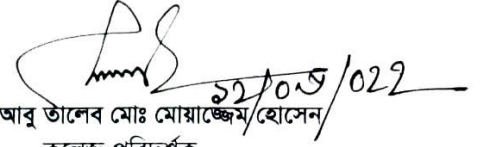 ১২/০৬/০২২
আবু তালেব মোঃ মোয়াজ্জেম হোসেন
কলেজ পরিদর্শক